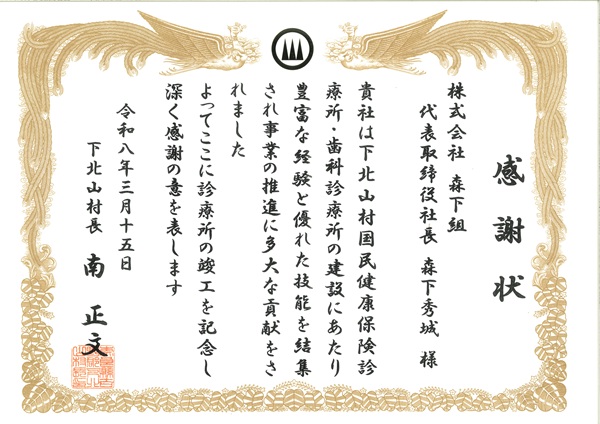 感謝状
株式会社 森下組
代表取締役社長 森下秀城 様
貴社は下北山村国民健康保険診
療所・歯科診療所の建設にあたり
豊富な経験と優れた技能を結集
され事業の推進に多大な貢献をさ
れました
よってここに診療所の竣工を記念し
深く感謝の意を表します
令和八年三月十五日
下北山村長 南 正文